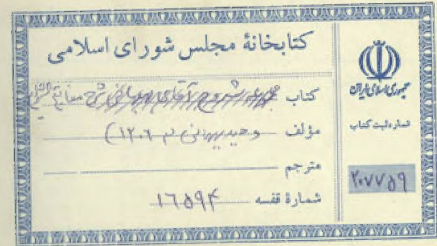 کتابخانهٔ مجلس شورای اسلامی
کتاب شرح مفاتیح
مؤلف وحید بهبهانی (م ۱۲۰۶)
مترجم
شمارهٔ قفسه ۱۶۵۹۴
جمهوری اسلامی ایران
شماره ثبت کتاب
۲۰۷۷۵۹